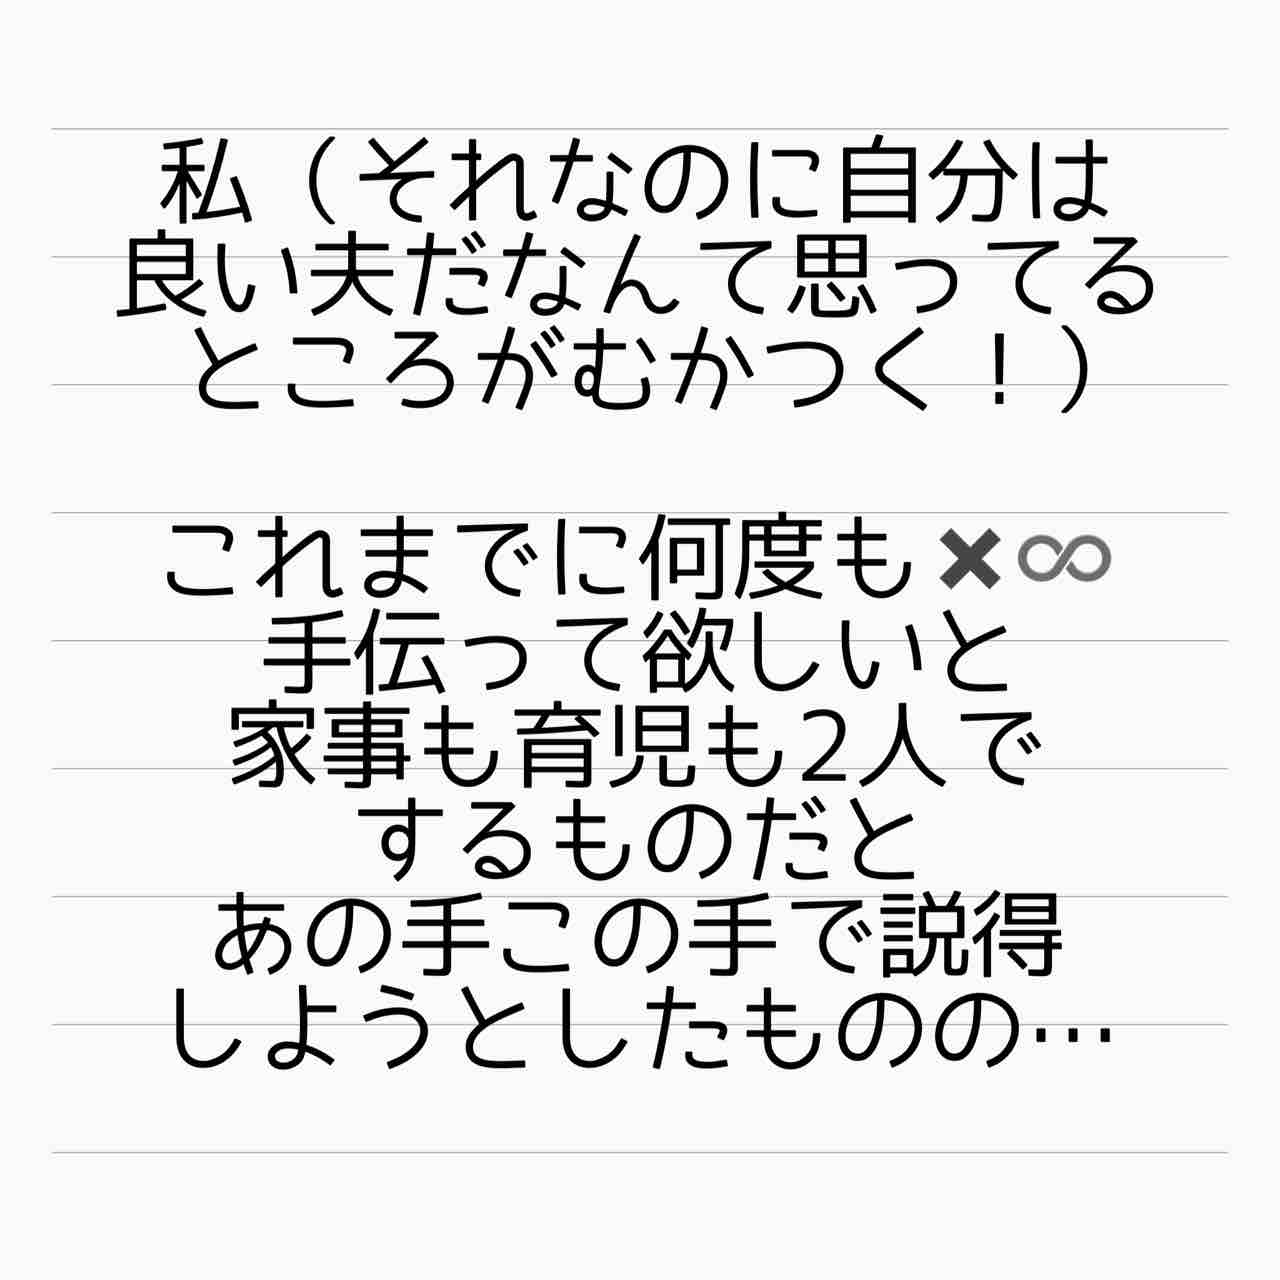 私（それなのに自分は
良い夫だなんて思ってる
ところがむかつく！）
これまでに何度も✖️♾️
手伝って欲しいと
家事も育児も2人で
するものだと
あの手この手で説得
しようとしたものの…